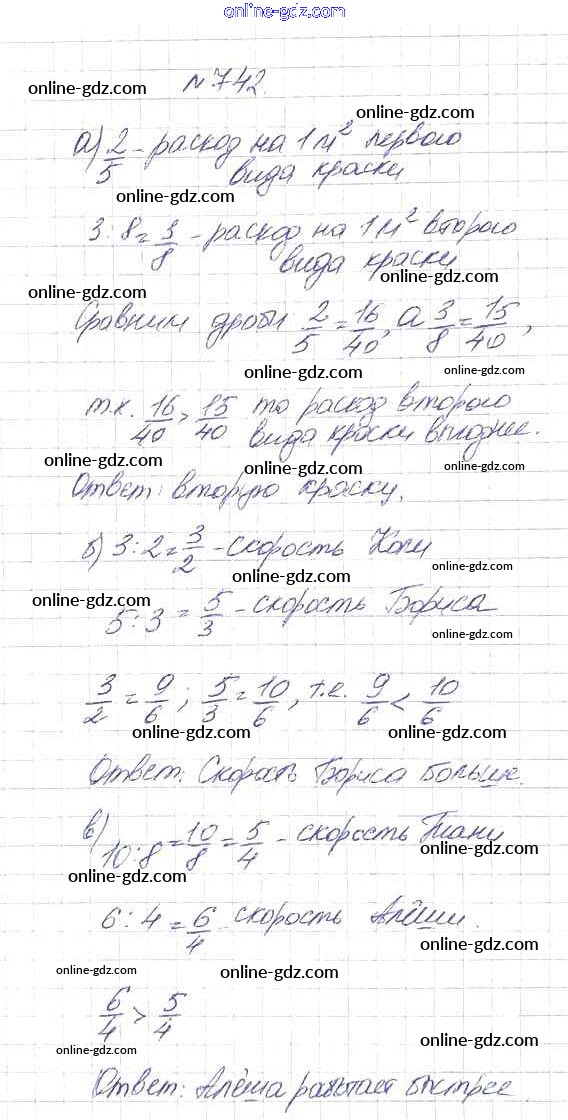 www.online-gdz.ru
№ 742.
online-gdz.com
online-gdz.com
а) 2/5 - расход на 1м² первого
вида краски
online-gdz.com
3:8=3/8 - расход на 1м² второго
вида краски
online-gdz.com
online-gdz.com
Сравним дроби 2/5=16/40, а 3/8=15/40,
online-gdz.com
online-gdz.com
т.к. 16/40>15/40 то расход второго
вида краски выгоднее.
online-gdz.com
online-gdz.com
online-gdz.com
Ответ: вторую краску.
б) 3:2=3/2 - скорость Коли
online-gdz.com
online-gdz.com
online-gdz.com
5:3=5/3 - скорость Бориса
online-gdz.com
3/2=9/6; 5/3=10/6, т.е. 9/6<10/6
online-gdz.com
online-gdz.com
Ответ: Скорость Бориса больше.
в) 10:8=10/8=5/4 - скорость Тани
online-gdz.com
online-gdz.com
6:4=6/4 скорость Алёши.
online-gdz.com
online-gdz.com
online-gdz.com
6/4>5/4
online-gdz.com
online-gdz.com
Ответ: Алёша работает быстрее
online-gdz.com